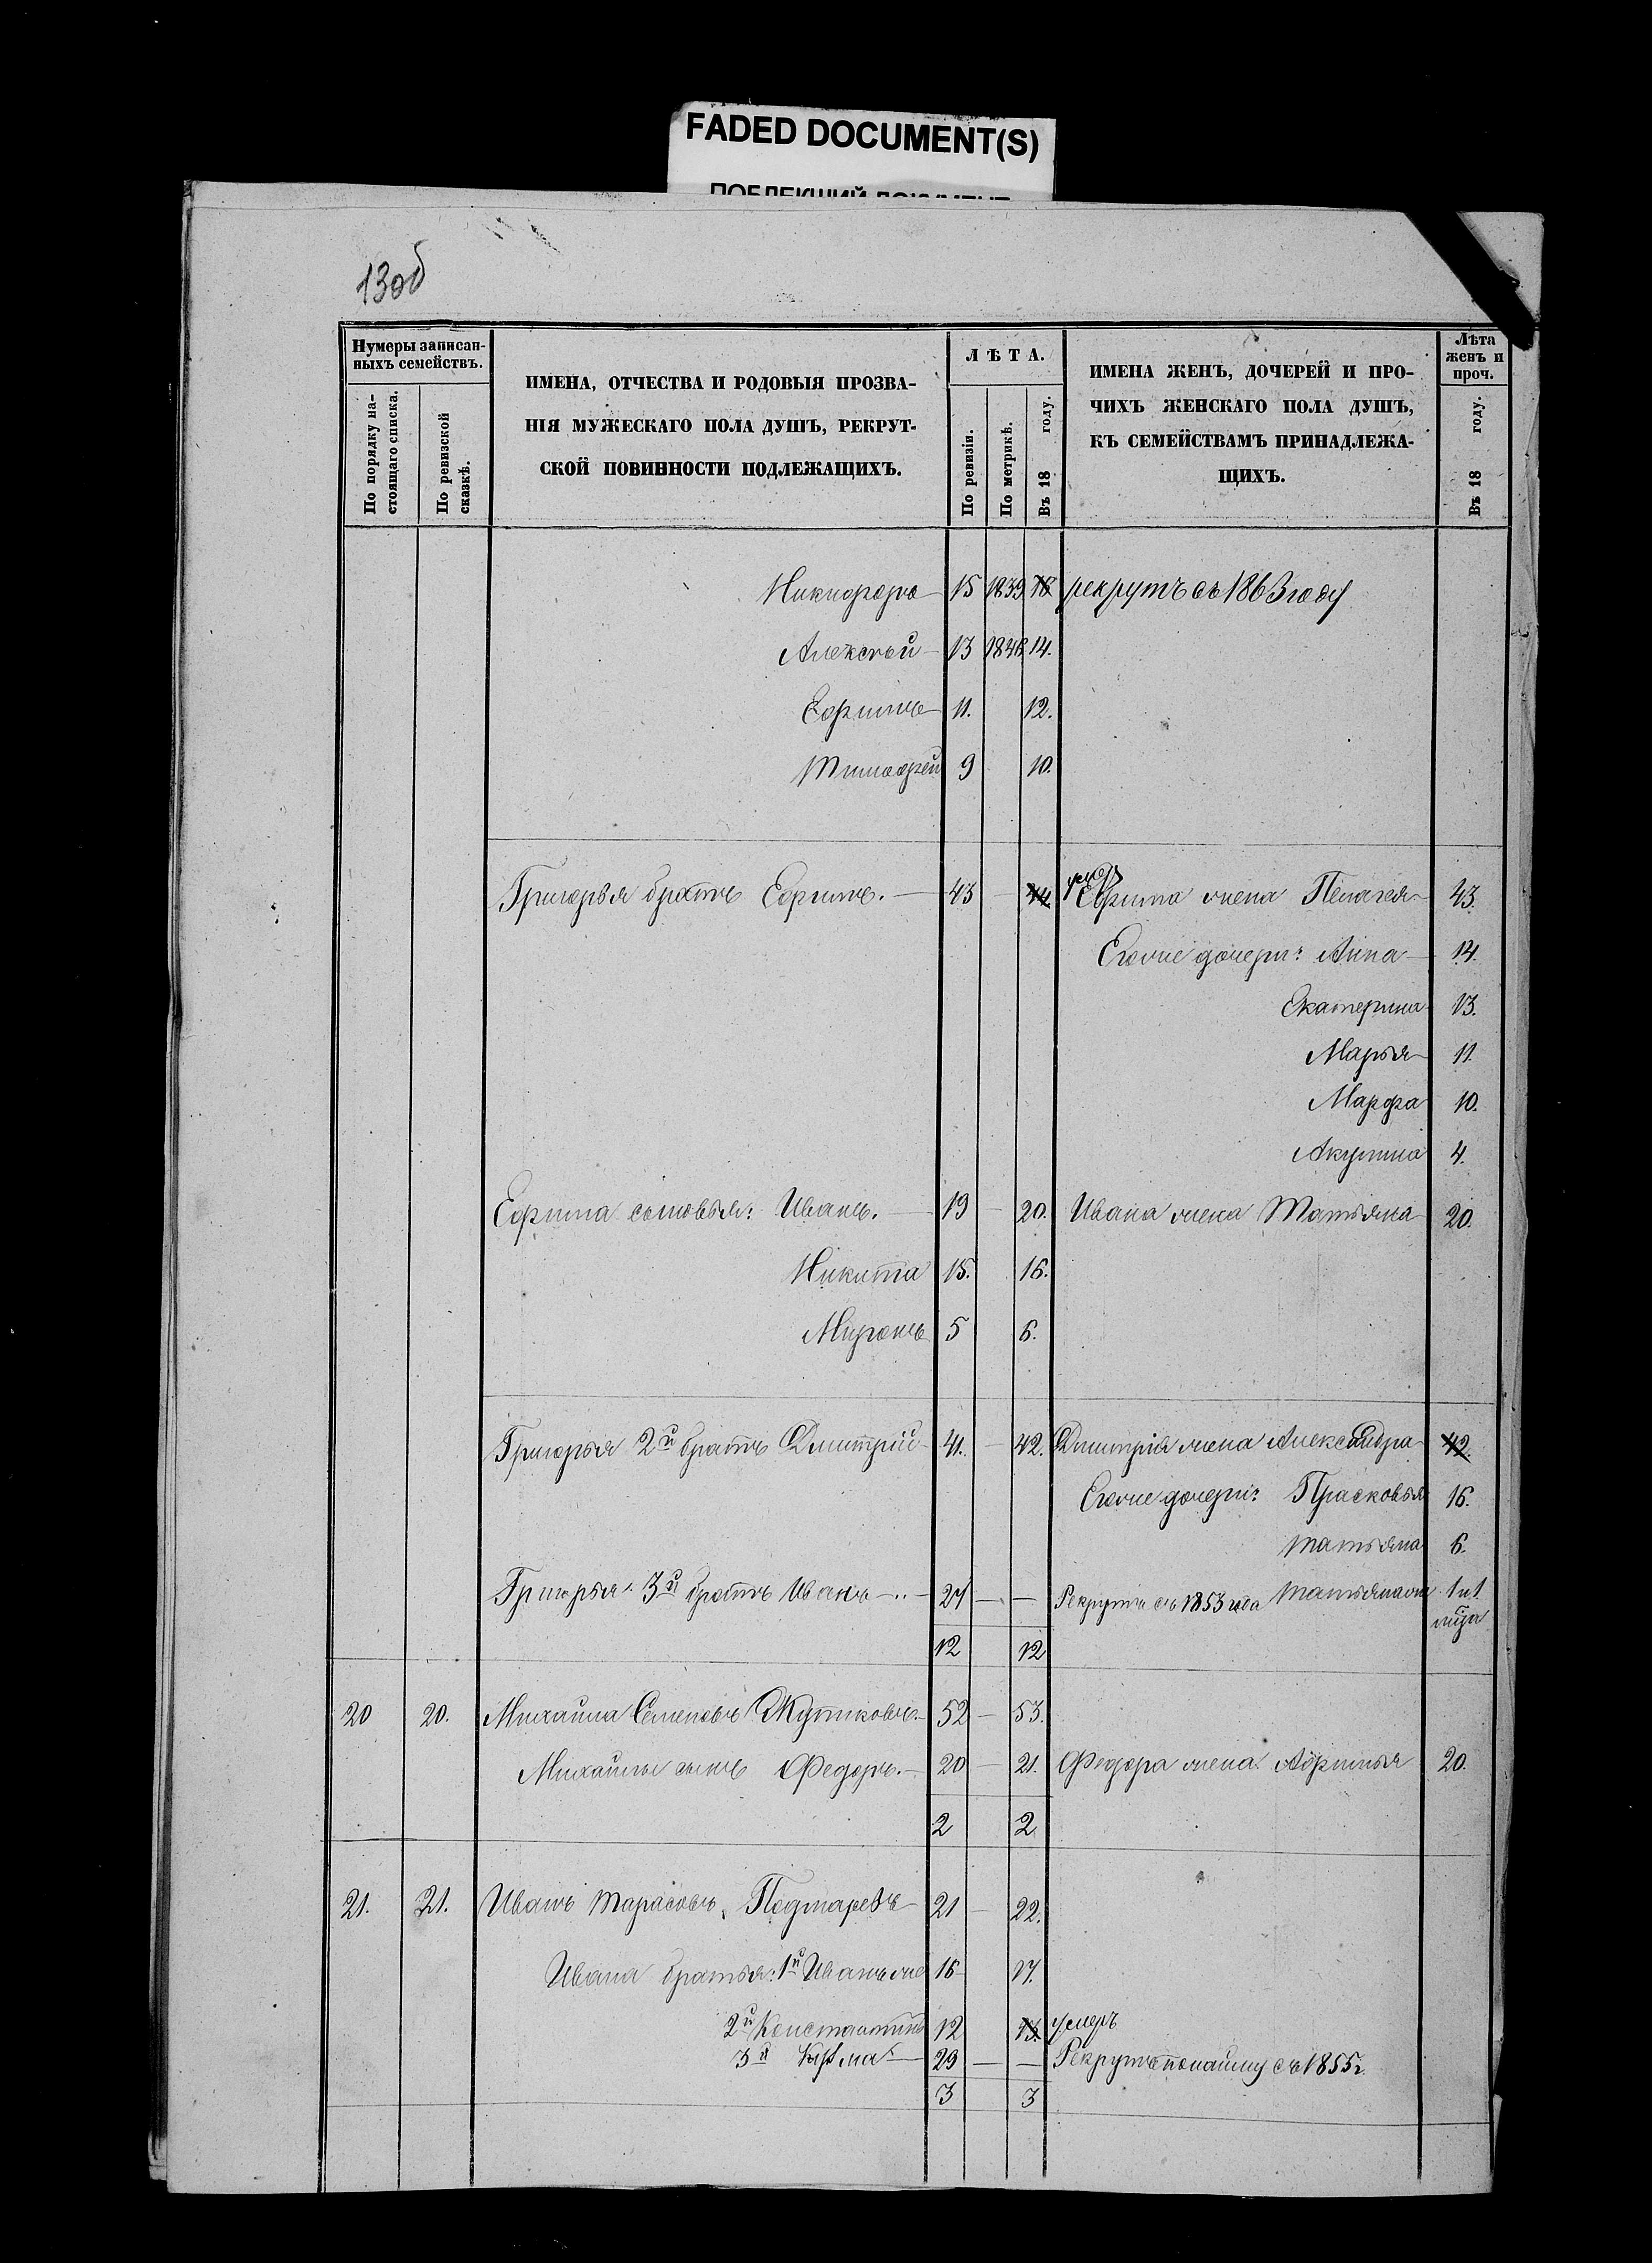 FADED DOCUMENT(S)
ПОБЛЕКШИЙ ДОКУМЕНТ
13об
Нумеры записан-
ныхъ семействъ.
По порядку на-
стоящаго списка.
По ревизской
сказкѣ.
ИМЕНА, ОТЧЕСТВА И РОДОВЫЯ ПРОЗВА-
НІЯ МУЖЕСКАГО ПОЛА ДУШЪ, РЕКРУТ-
СКОЙ ПОВИННОСТИ ПОДЛЕЖАЩИХЪ.
ЛѢТА.
По ревизіи.
По метрикѣ.
Въ 18 году.
ИМЕНА ЖЕНЪ, ДОЧЕРЕЙ И ПРО-
ЧИХЪ ЖЕНСКАГО ПОЛА ДУШЪ,
КЪ СЕМЕЙСТВАМЪ ПРИНАДЛЕЖА-
ЩИХЪ.
Лѣта
женъ и
проч.
Въ 18 году.
Никифоръ 15 1839 16 рекрутъ съ 1863 году
Алексѣй 13 1846 14.
Ефимъ 11. 12.
Тимофей 9 10.
Григорья братъ Ефимъ. 43 — 44 умер
Ефима жена Пелагея 43.
Егоже дочери: Анна 14.
Екатерина 13.
Марья 11.
Марфа 10.
Акулина 4.
Ефима сыновья: Иванъ. 19 — 20. Ивана жена Татьяна 20.
Никита 15. 16.
Миронъ 5 6.
Григорья 2й братъ Дмитрій 41. — 42. Дмитрія жена Александра 42.
Егоже дочери: Прасковья 16.
Татьяна 6.
Григорья 3й братъ Иванъ 27 — — Рекрутъ съ 1853 года Татьяна
12 12
20 20. Михаила Семеновъ Жутиковъ. 52 — 53.
Михайлы сынъ Федоръ. 20 — 21. Федора жена Афимья 20.
2 2
21. 21. Иванъ Тарасовъ 21 — 22.
Ивана братья: 1й Иванъ же 16 17.
2й Константинъ 12 13. умеръ
3й Кузма 29 — — Рекрутъ по найму съ 1855 г.
3 3